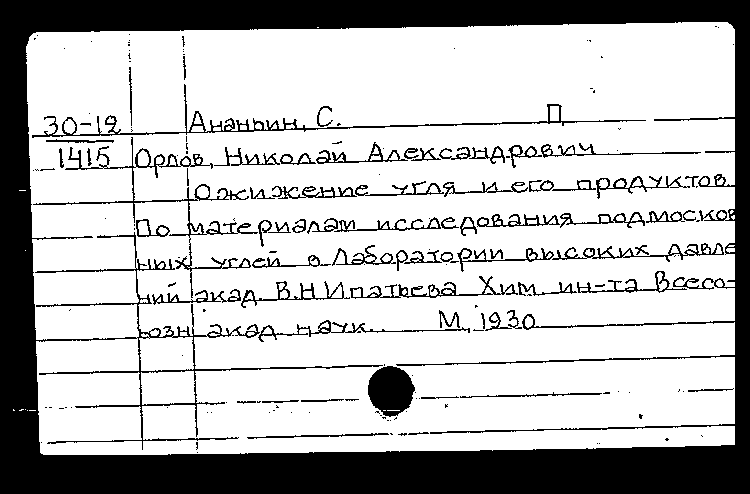 30-12 Ананьин, С. П,
1415 Орлов, Николай Александрович
Ожижение угля и его продуктов.
По материалам исследования подмосков
ных углей в Лаборатории высоких давле
ний акад. В.Н Ипатьева Хим. ин-та Всесо-
юзн акад. наук. М, 1930